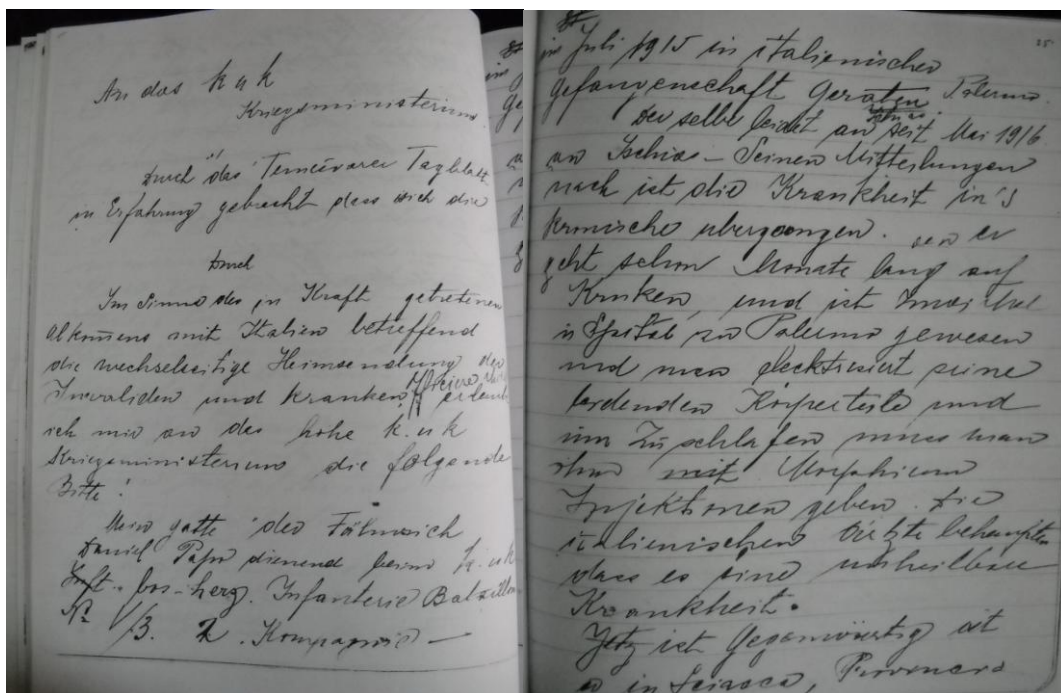 An das k u k
Kriegsministerium
Durch das Temesvarer Tagblatt
in Erfahrung gebracht dass sich die
Durch
Im Sinne des in Kraft getretenen
abkom̄ens mit Italien betreffend
die wechselseitige Heimsendung der
Invaliden und kranken Officiere erlaube
ich mir an das hohe k. u k
Kriegsministerium die folgende
Bitte!
Mein gatte der Fähnrich
Daniel Papo dienend beim k. u k
bos-herz. Infanterie Bataillon
No /3. 2. Kompagnie —
25
im Juli 1915 in italienischer
gefangenschaft Geraten Palermo
Der selbe leidet an seit Mai 1916
an Ischias – Seinen Mitteilungen
nach ist die Krankheit in's
kronische ubergangen. den er
geht schon Monate lang auf
Kruken, und ist zwei Mal
in Spital zu Palermo gewesen
und man elecktrisiert seine
leidenden Körperteile und
um Zu schlafen muss man
ihm mit Morphium
Injektionen geben. Die
italienischen Ärtzte behaupten
dass es eine unheilbare
Krankheit.
Jetz ist Gegenwärtig ist
er in Sciacca,